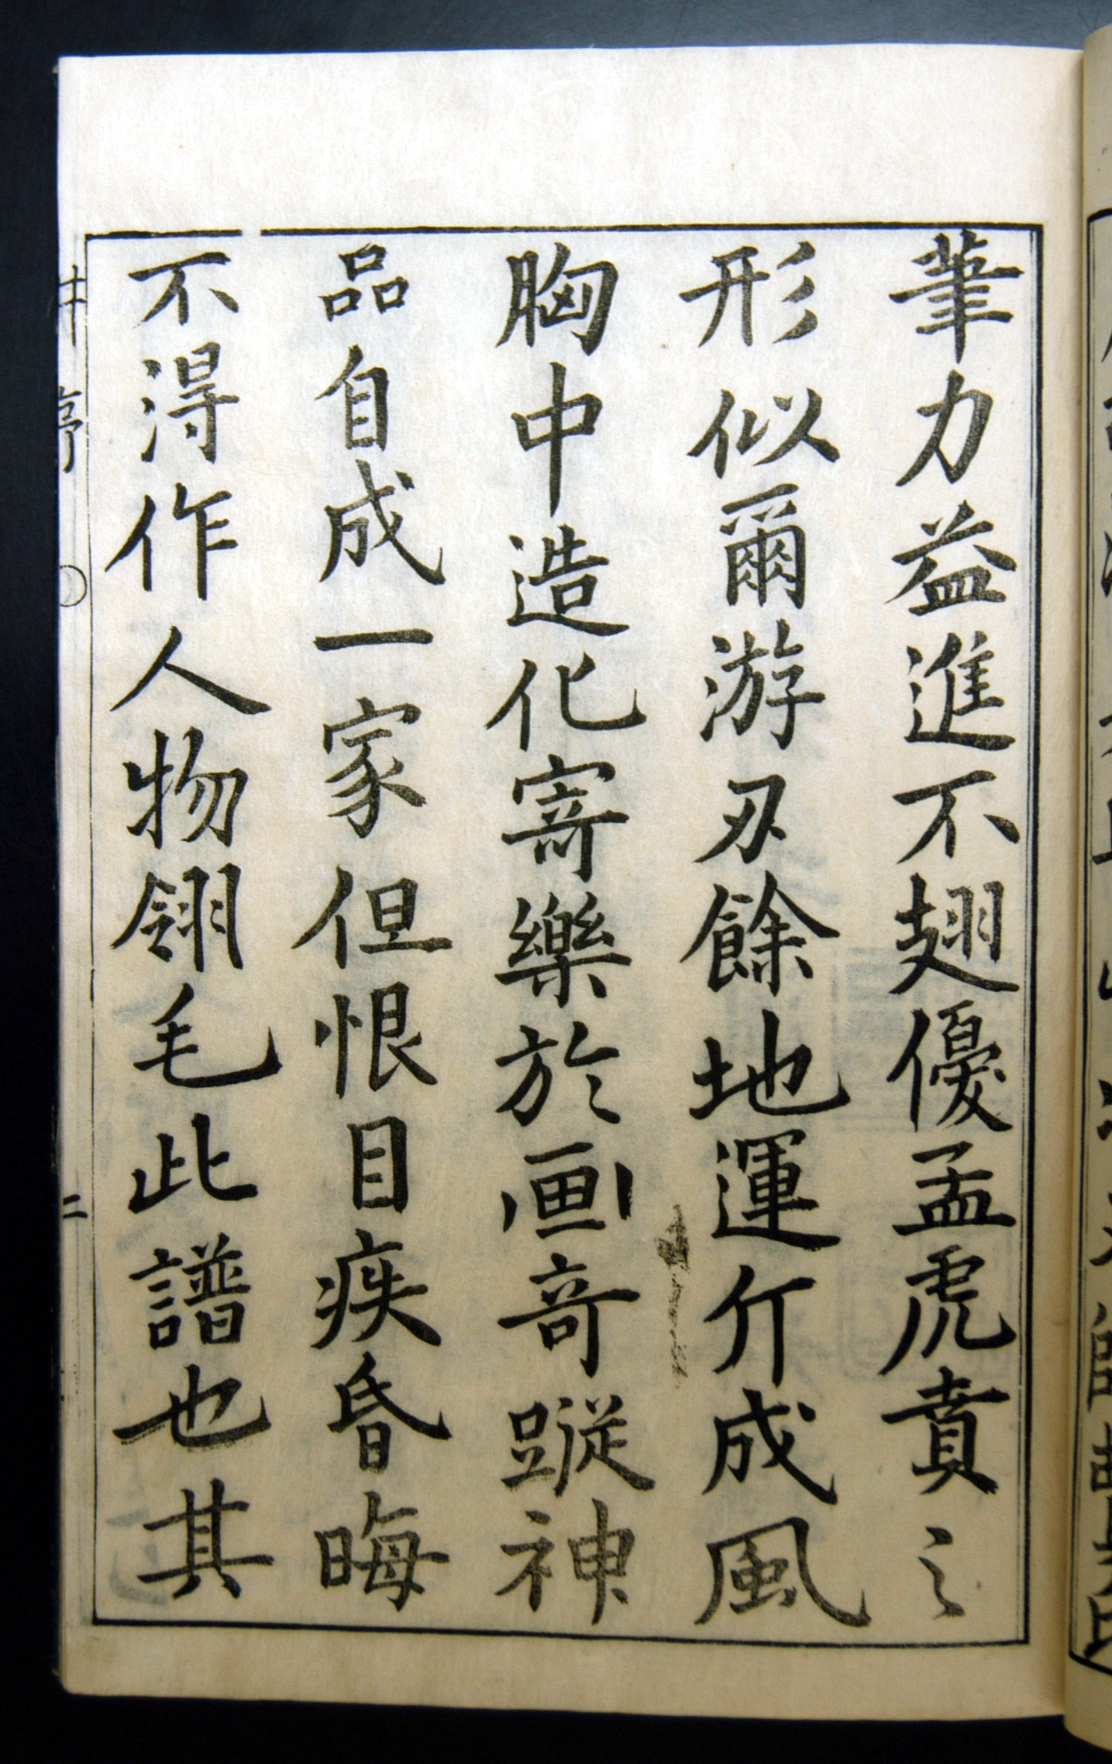 筆力益進不翅優孟虎賁之
形似爾游刃餘地運斤成風
胸中造化寄樂於画奇蹤神
品自成一家但恨目疾昏晦
不得作人物翎毛此譜也其
序
二